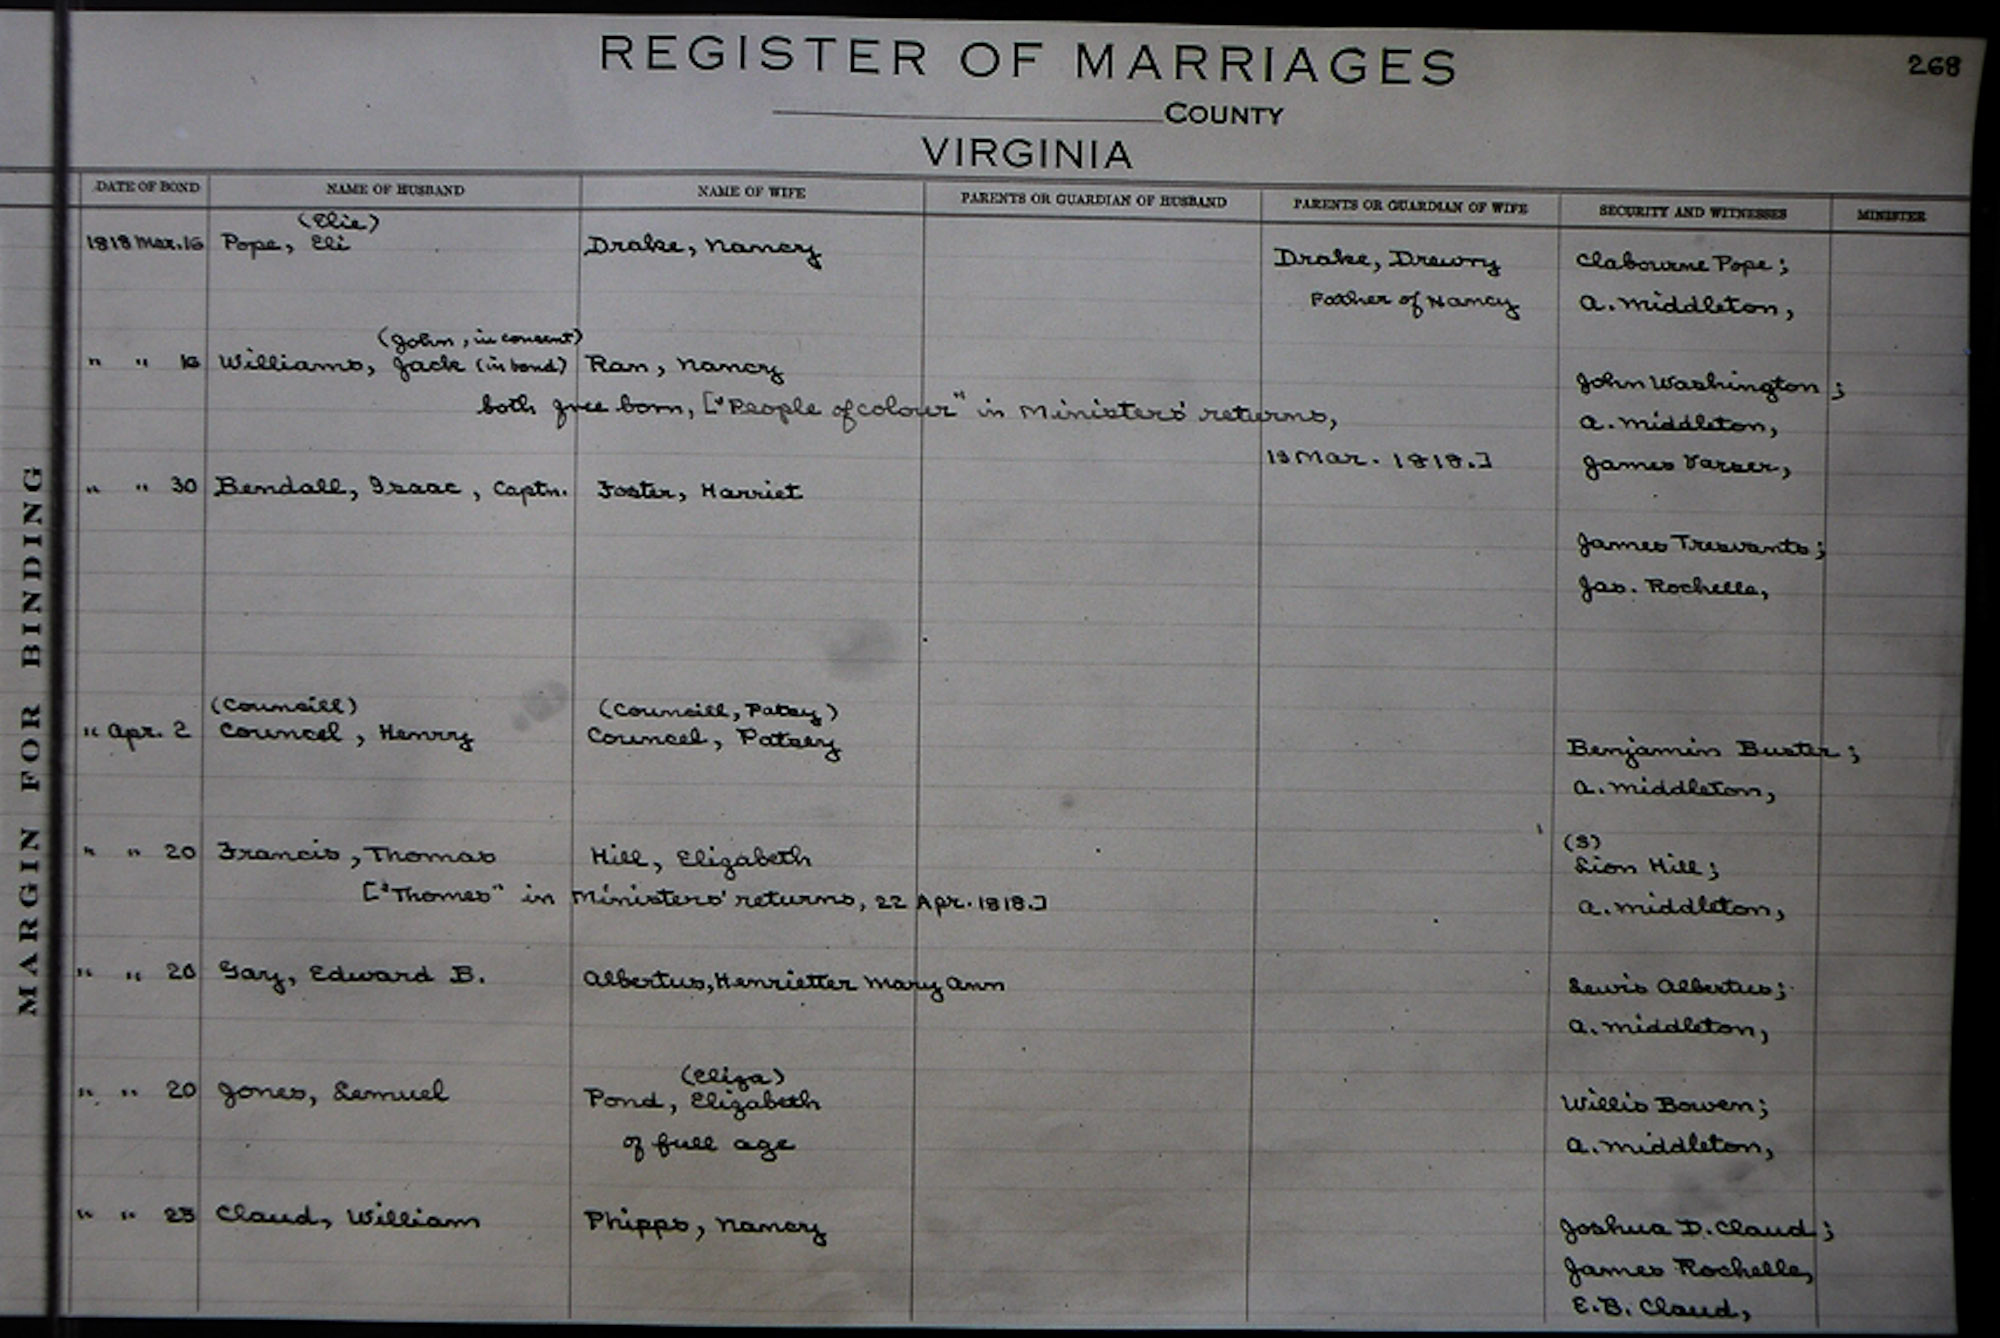 REGISTER OF MARRIAGES
268
COUNTY
VIRGINIA
DATE OF BOND NAME OF HUSBAND NAME OF WIFE PARENTS OR GUARDIAN OF HUSBAND PARENTS OR GUARDIAN OF WIFE SECURITY AND WITNESSES MINISTER
(Elie)
1818 Mar. 16 Pope, Eli Drake, Nancy Drake, Drewry Clabourne Pope;
Father of Nancy A. Middleton,
(John, in consent)
" " 16 Williams, Jack (in bond) Ran, Nancy John Washington;
both free born, ["People of colour" in Ministers' returns, A. Middleton,
19 Mar. 1818.] James Varser,
" " 30 Bendall, Isaac, Captn. Foster, Harriet
James Tresvants;
Jas. Rochelle,
(Councill) (Councill, Patsy)
" Apr. 2 Councel, Henry Councel, Patsey Benjamin Buster;
A. Middleton,
(S)
" " 20 Francis, Thomas Hill, Elizabeth Lion Hill;
["Thomes" in Ministers' returns, 22 Apr. 1818.] A. Middleton,
" " 20 Gay, Edward B. Albertus, Henrietter Mary Ann Lewis Albertus;
A. Middleton,
(Eliza)
" " 20 Jones, Lemuel Pond, Elizabeth Willis Bowen;
of full age A. Middleton,
" " 25 Claud, William Phipps, Nancy Joshua D. Claud;
James Rochelle,
E.B. Claud,
MARGIN FOR BINDING